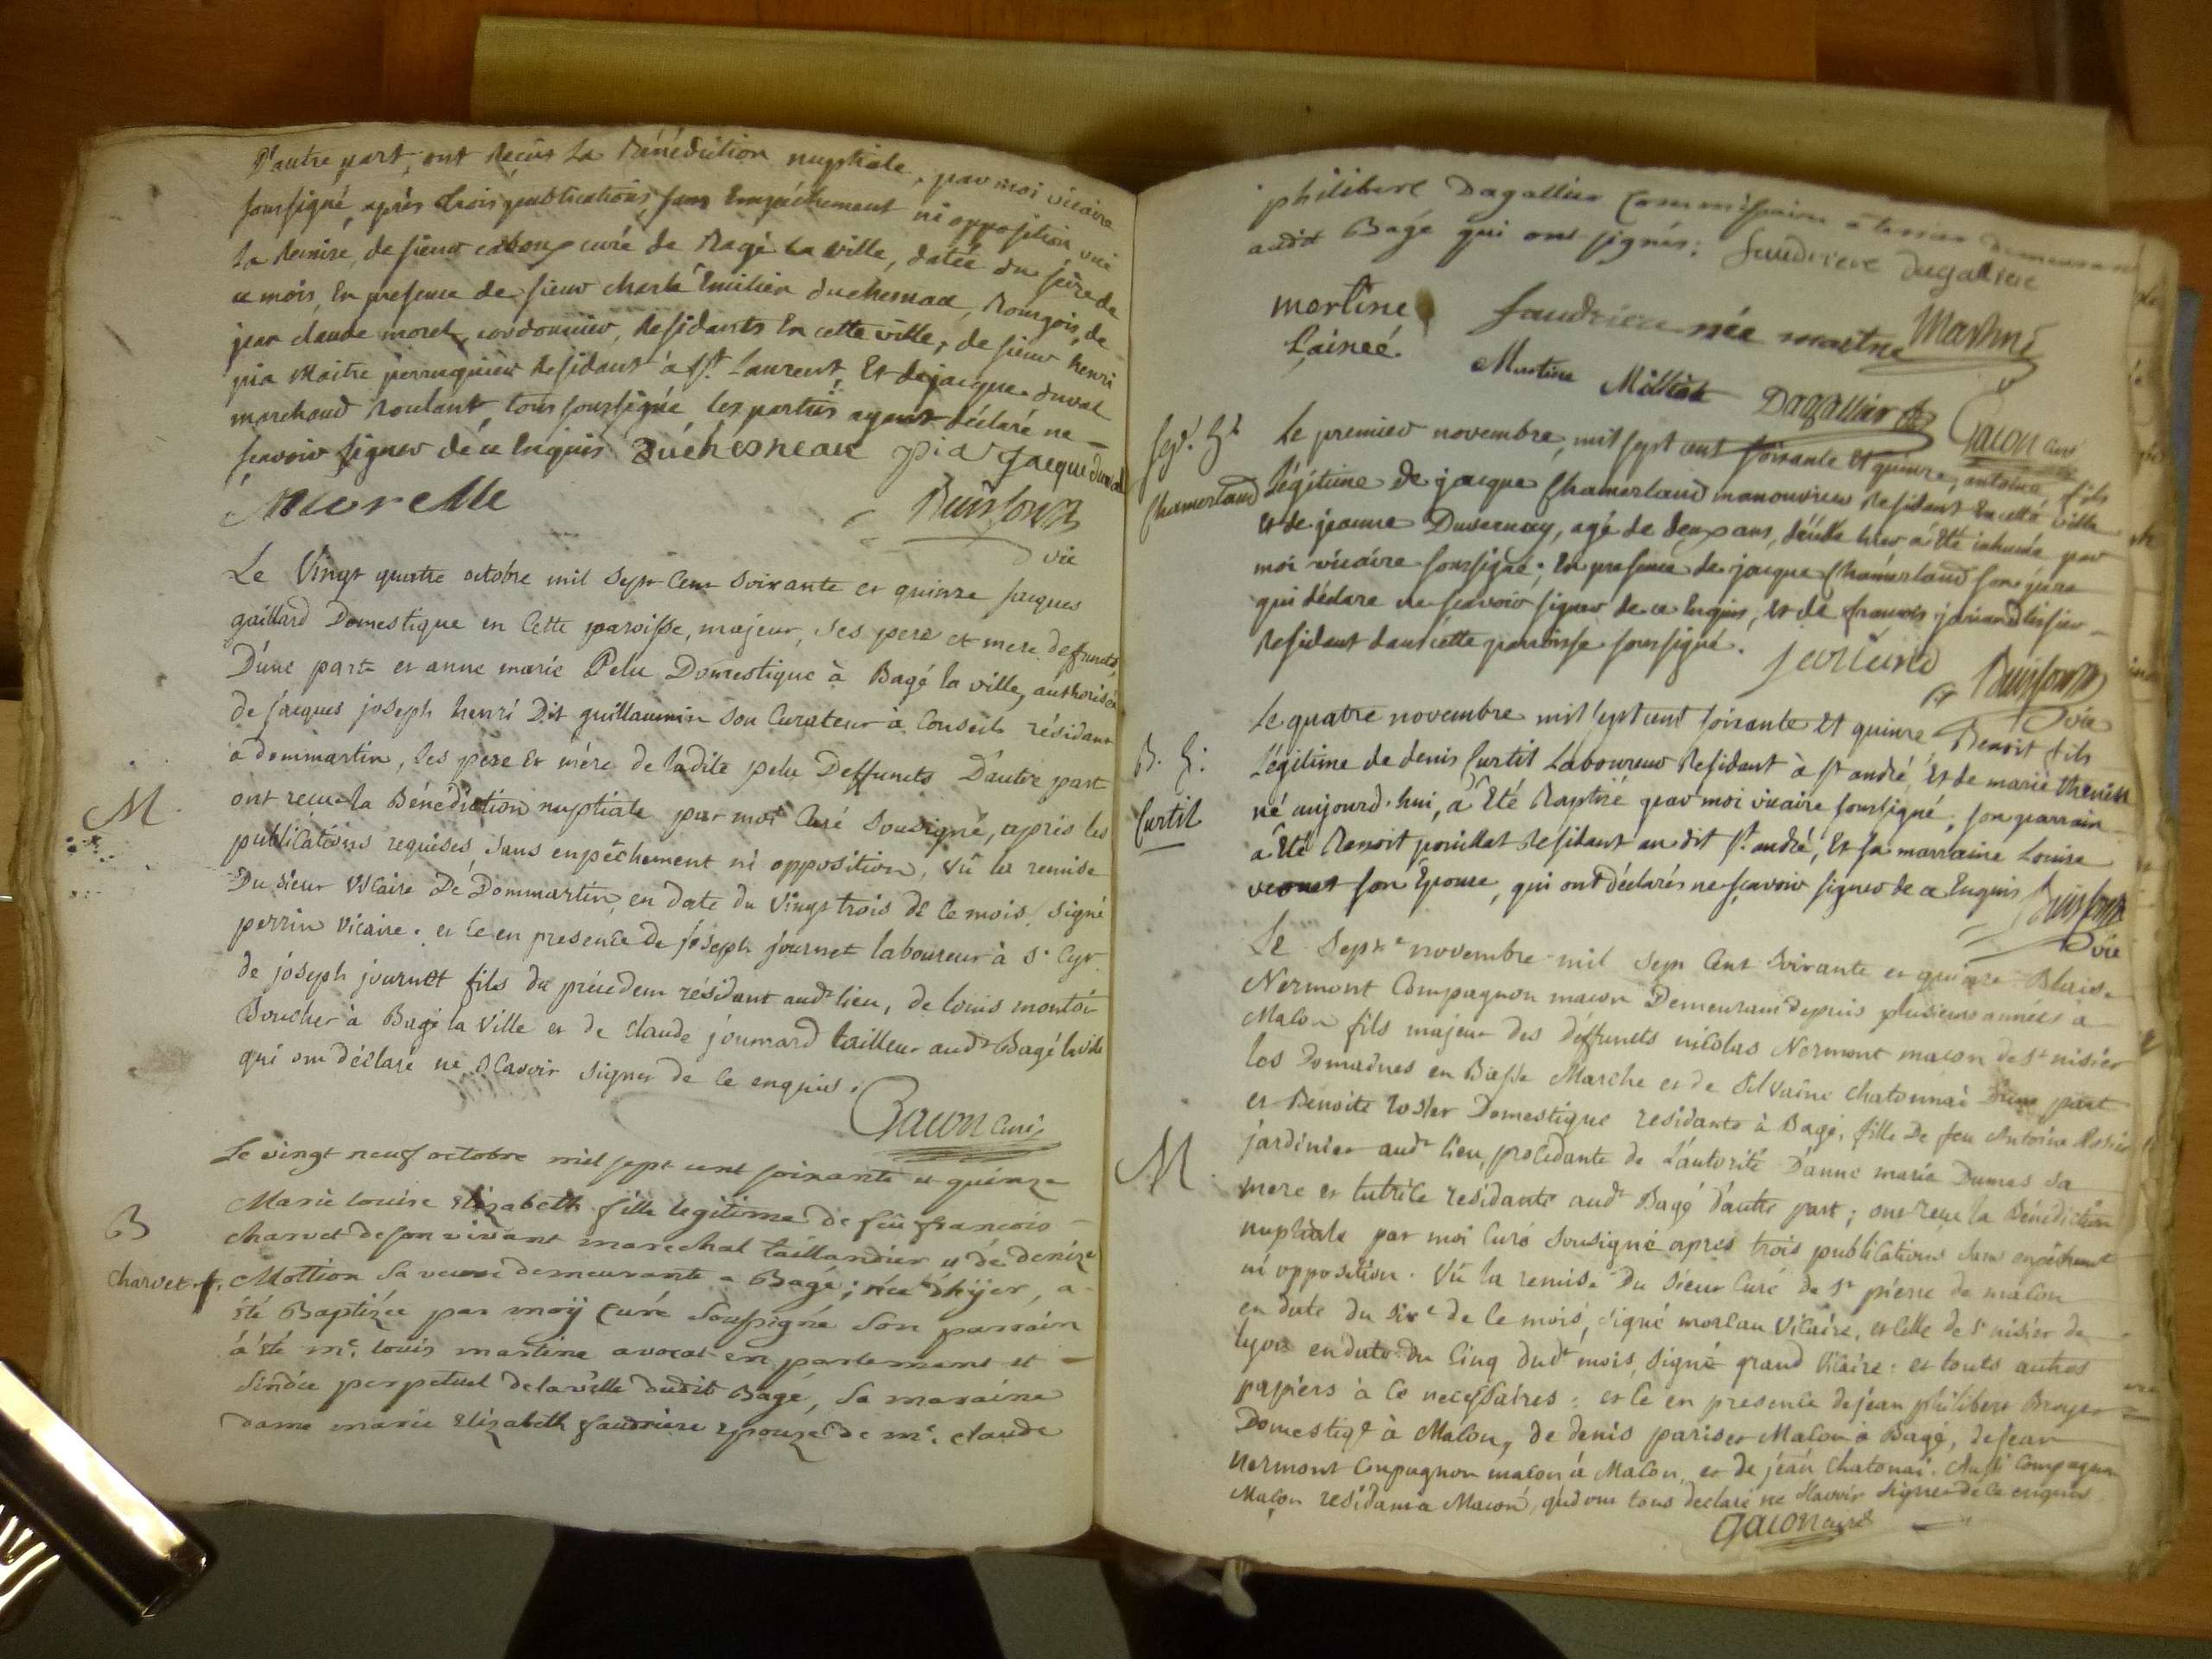 D'autre part, ont reçus la Bénédiction nuptiale, par moi vicaire
soussigné, après trois publications, sans Empéchement ni opposition, vue
la remise, de sieur curé de Bagé la ville, datée du seize de
ce mois, En presence de sieur charle Emilien duchesnau, Bourgois, de
jean claude morel, cordonnier, Residants En cette ville, de sieur henri
pia Maitre perruquier Residant à St. Laurent, Et de jacque duval
marchand roulant, tous soussigné, les parties ayant déclaré ne
scavoir signer de ce Enquis Duchesneau pia jacque duval
Morelle
Buisson
vic
Le Vingt quatre octobre mil sept Cent soixante et quinze jacques
gaillard Domestique en Cette paroisse, majeur, ses pere et mere deffuncts,
D'une part et anne marie Pelu Domestique à Bagé la ville, authorisée
de jacques joseph henri Dit guillaumin son Curateur à Conseil résidant
a dommartin, les pere Et mère de ladite pelu Deffuncts D'autre part
M
ont reçue la Bénédiction nuptiale par moi Curé Sousigné, après les
publications requises, sans enpêchement ni opposition, Vû la remise
Du sieur Vicaire De Dommartin en date du Vingt trois de ce mois, signé
perrin Vicaire. et ce en presence de joseph journet laboureur à St Cyr
de joseph journet fils du précedent résidant audt lieu, de louis
Boucher à Bagé la Ville et de Claude joumard tailleur audt Bagé la ville
qui ont déclaré ne sCavoir signer de ce enquis.
Gacon Curé
B
Charvet
Le vingt neuf octobre mil sept cent soixante et quinze
Marie louise Elizabeth fille légitime de feu francois
charvet de son vivant marechal taillandier et de denize
Mottion sa veuve demeurante a Bagé; née d'hÿer, a
été Baptizée par moÿ Curé Soussigné Son parrain
à été me. louis martine avocat en parlement et
Sindic perpetuel de la ville dudit Bagé, Sa maraine
dame marie Elizabeth faudriere epouze de me. claude
philibert Dagallier Commissaire a terrier demeurant
audit Bagé qui ont signés: faudriere dagallier
martine
L'aineé.
faudriere née martine Martine
Martine Milliat Dagallier
Gacon Curé
Chamerland
Le premier novembre, mil sept cent soixante Et quinze, antoine, fils
Légitime de jacque Chamerland manouvrier Residant En cette ville
et de jeanne Duvernay, agé de deux ans, décédé hier a Eté inhumé par
moi vicaire soussigné; En presence de jacque Chamerland son pere
qui déclare ne scavoir signer de ce Enquis, Et de francois jarian tissier
Resident dans cette parroisse soussigné.
Buisson
vic
B.
Curtil
Le quatre novembre mil sept cent soixante Et quinze, Benoit fils
Légitime de denis Curtil Laboureur Residant à St andré, Et de marie thenin
né aujourd'hui, a Eté Baptisé par moi vicaire soussigné, son parrain
a Eté Benoit ponillat Residant au dit St. andré, Et sa marraine Louise
son Epouse, qui ont déclarés ne sçavoir signer de ce Enquis
Buisson
vic
Le Septe novembre mil sept Cent Soixante et quinze Blaise
Nermont Compagnon macon Demeurant depuis plusieurs années a
MaCon fils majeur des deffuncts nicolas Nermont macon de St nisier
les Domaines en Basse Marche et de Silvaine chatonnai D'une part
et Benoite rosier Domestique residante à Bagé, fille De feu Antoine Rosier
jardinier audt lieu, proCedante de L'autorité D'anne marie Dumas sa
M
mere et tutriCe residante audt Bagé D'autre part; ont reçue la Bénédiction
nuptiale par moi Curé Sousigné apres trois publications sans enpêchement
ni opposition. Vû la remise Du Sieur Curé de St pierre de maCon
en date du sixe de Ce mois, signé moreau ViCaire, et Celle de St nisier de
lyon en date Du Cinq dudt mois, signé grand ViCaire: et touts autres
papiers à Ce necessaires: et Ce en presence de jean philibert Broyer
Domestiqe à MaCon, de denis pariset MaCon à Bagé, de jean
Nermont Conpagnon macon à MaCon, et de jean Chatonai Aussi Compagnon
Maçon residant a Macon, qui ont tous declaré ne sCavoir signer de Ce enquis
Gacon curé